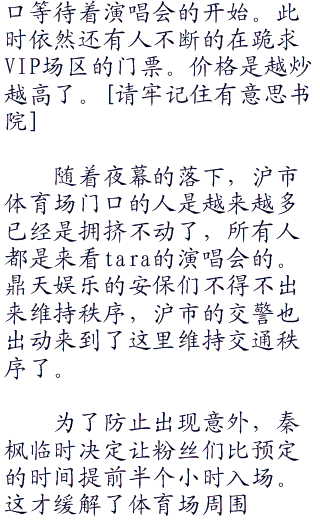 口等待着演唱会的开始。此
时依然还有人不断的在跪求
VIP场区的门票。价格是越炒
越高了。[请牢记住有意思书
院]
随着夜幕的落下，沪市
体育场门口的人是越来越多
已经是拥挤不动了，所有人
都是来看tara的演唱会的。
鼎天娱乐的安保们不得不出
来维持秩序，沪市的交警也
出动来到了这里维持交通秩
序了。
为了防止出现意外，秦
枫临时决定让粉丝们比预定
的时间提前半个小时入场。
这才缓解了体育场周围